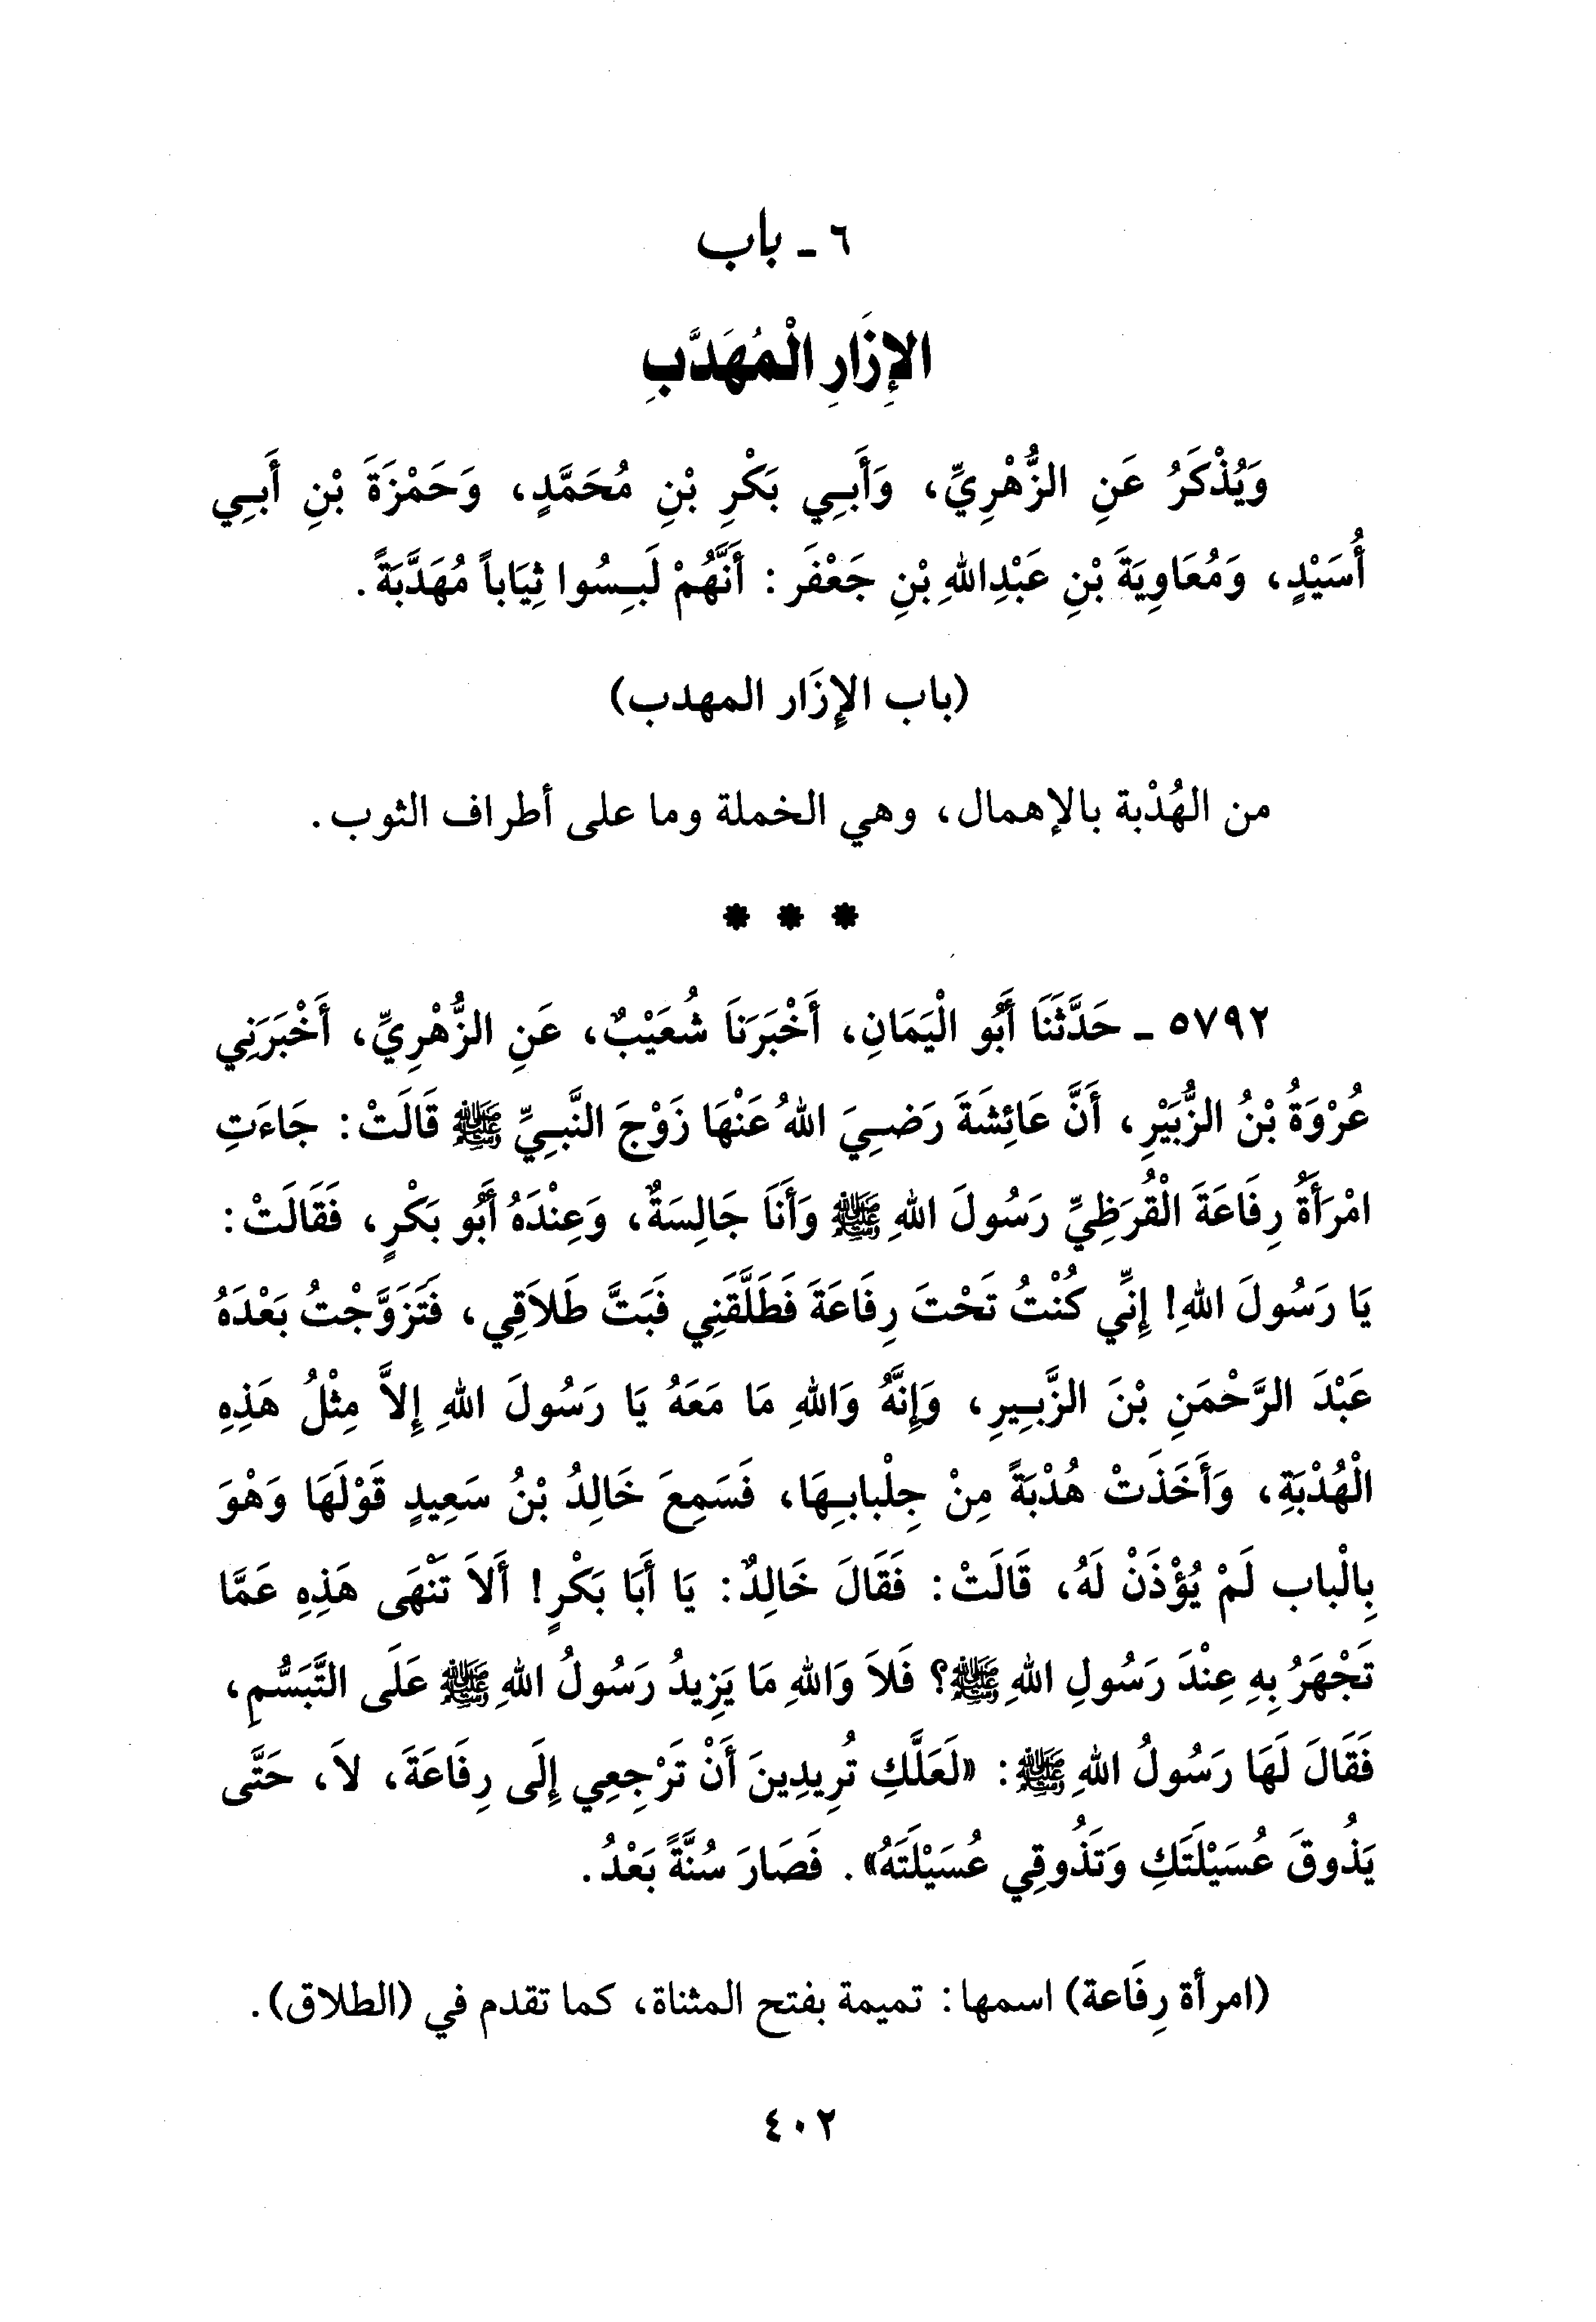 ٦ - باب
الإِزَارِ الْمُهَدَّبِ
وَيُذْكَرُ عَنِ الزُّهْرِيِّ، وَأَبِي بَكْرِ بْنِ مُحَمَّدٍ، وَحَمْزَةَ بْنِ أَبِي
أُسَيْدٍ، وَمُعَاوِيَةَ بْنِ عَبْدِاللهِ بْنِ جَعْفَر: أَنَّهُمْ لَبِسُوا ثِيَاباً مُهَدَّبَةً.
(باب الإِزَار المهدب)
من الهُدْبة بالإهمال، وهي الخملة وما على أطراف الثوب.
* * *
٥٧٩٢ - حَدَّثَنَا أَبُو الْيَمَانِ، أَخْبَرَنَا شُعَيْبٌ، عَنِ الزُّهْرِيِّ، أَخْبَرَنِي
عُرْوَةُ بْنُ الزُّبَيْرِ، أَنَّ عَائِشَةَ رَضِيَ اللهُ عَنْهَا زَوْجَ النَّبِيِّ ﷺ قَالَتْ: جَاءَتِ
امْرَأَةُ رِفَاعَةَ الْقُرَظِيِّ رَسُولَ اللهِ ﷺ وَأَنَا جَالِسَةٌ، وَعِنْدَهُ أَبُو بَكْرٍ، فَقَالَتْ:
يَا رَسُولَ اللهِ! إِنِّي كُنْتُ تَحْتَ رِفَاعَةَ فَطَلَّقَنِي فَبَتَّ طَلاَقِي، فَتَزَوَّجْتُ بَعْدَهُ
عَبْدَ الرَّحْمَنِ بْنَ الزَّبِيرِ، وَإِنَّهُ وَاللهِ مَا مَعَهُ يَا رَسُولَ اللهِ إِلاَّ مِثْلُ هَذِهِ
الْهُدْبَةِ، وَأَخَذَتْ هُدْبَةً مِنْ جِلْبابِهَا، فَسَمِعَ خَالِدُ بْنُ سَعِيدٍ قَوْلَهَا وَهْوَ
بِالْباب لَمْ يُؤْذَنْ لَهُ، قَالَتْ: فَقَالَ خَالِدٌ: يَا أَبَا بَكْرٍ! أَلاَ تَنْهَى هَذِهِ عَمَّا
تَجْهَرُ بِهِ عِنْدَ رَسُولِ اللهِ ﷺ؟ فَلاَ وَاللهِ مَا يَزِيدُ رَسُولُ اللهِ ﷺ عَلَى التَّبَسُّمِ،
فَقَالَ لَهَا رَسُولُ اللهِ ﷺ: «لَعَلَّكِ تُرِيدِينَ أَنْ تَرْجِعِي إِلَى رِفَاعَةَ، لاَ، حَتَّى
يَذُوقَ عُسَيْلَتَكِ وَتَذُوقِي عُسَيْلَتَهُ». فَصَارَ سُنَّةً بَعْدُ.
(امرأة رِفَاعة) اسمها: تميمة بفتح المثناة، كما تقدم في (الطلاق).
٤٠٢